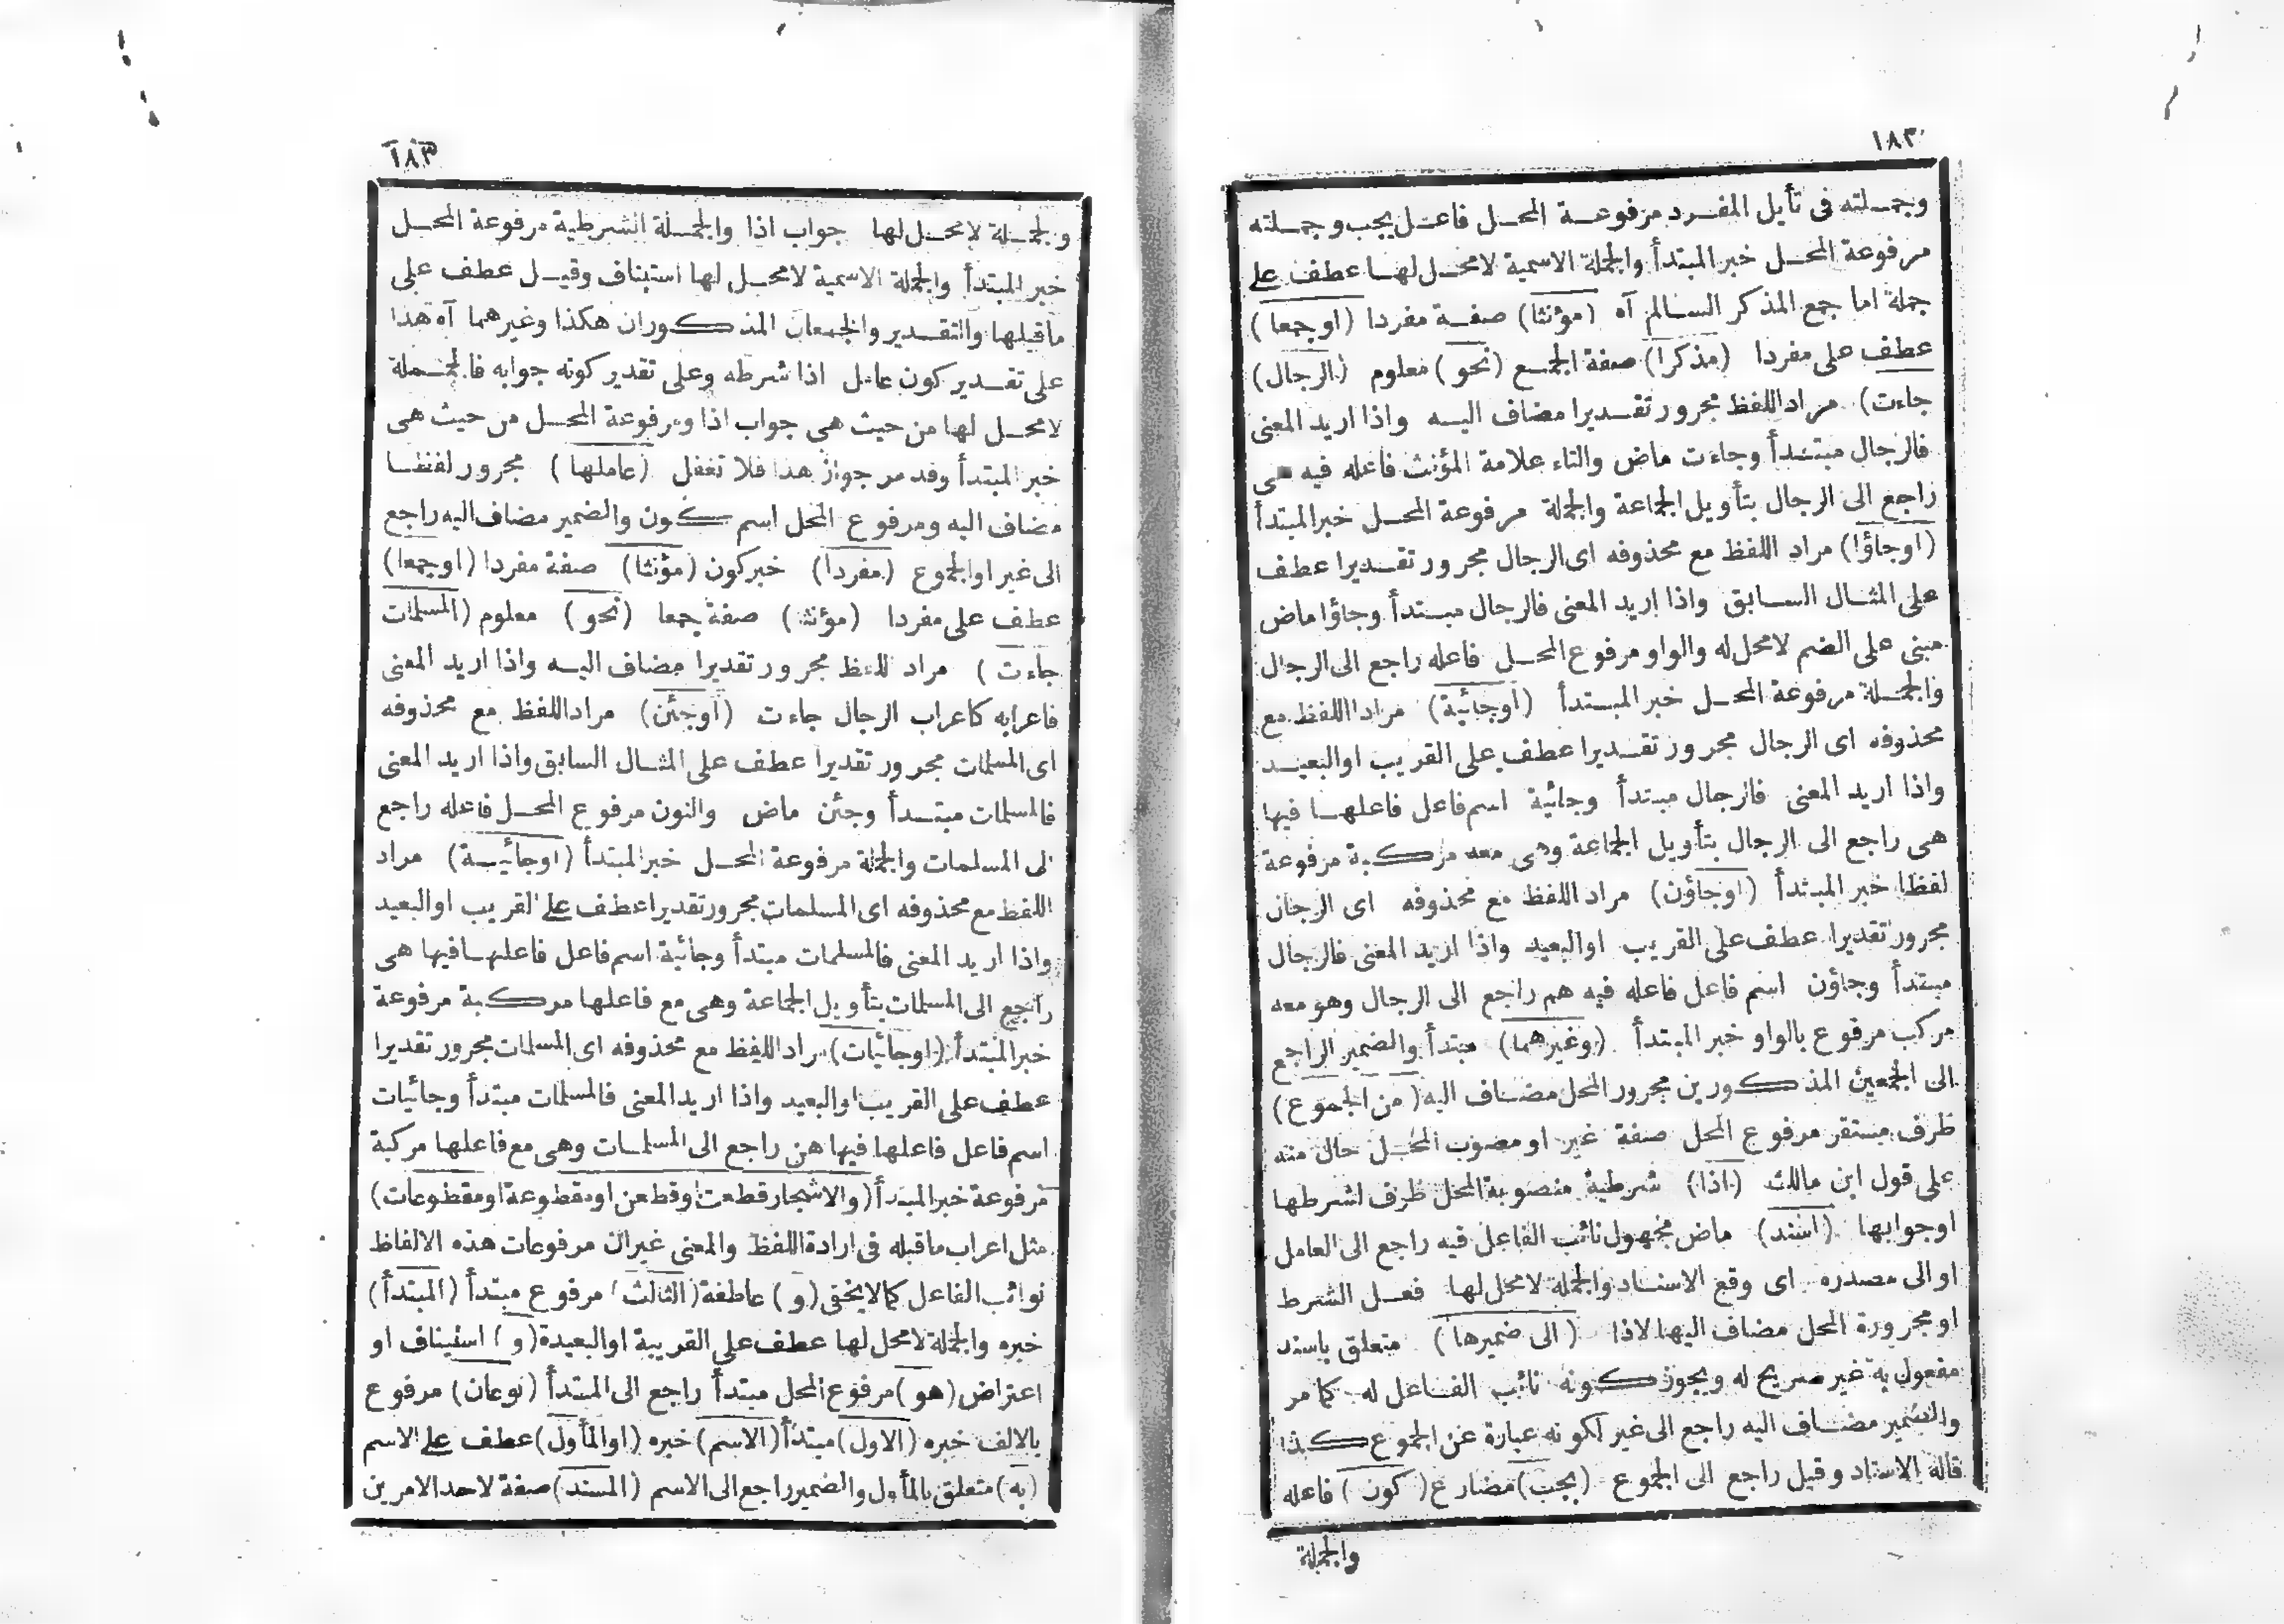 ١٨٢
وجملته فى تأيل المفرد مرفوعة المحل فاعل يجب وجملته
مرفوعة المحل خبر المبتدأ والجملة الاسمية لامحل لها عطف على
جملة اما جمع المذكر السالم آه (مؤنثا) صفة مفردا (اوجمعا)
عطف على مفردا (مذكرا) صفة الجمع (نحو) معلوم (الرجال)
جاءت) مراد اللفظ مجرور تقديرا مضاف اليه واذا اريد المعنى
فالرجال مبتدأ وجاءت ماض والتاء علامة المؤنث فاعله فيه هى
راجع الى الرجال بتأويل الجماعة والجملة مرفوعة المحل خبر المبتدأ
(اوجاؤا) مراد اللفظ مع محذوفه اى الرجال مجرور تقديرا عطف
على المثال السابق واذا اريد المعنى فالرجال مبتدأ وجاؤا ماض
مبنى على الضم لامحل له والواو مرفوع المحل فاعله راجع الى الرجال
والجملة مرفوعة المحل خبر المبتدأ (اوجائية) مراد اللفظ مع
محذوفه اى الرجال مجرور تقديرا عطف على القريب اوالبعيد
واذا اريد المعنى فالرجال مبتدأ وجائية اسم فاعل فاعلها فيها
هى راجع الى الرجال بتأويل الجماعة وهى معه مركبة مرفوعة
لفظا خبر المبتدأ (اوجاؤن) مراد اللفظ مع محذوفه اى الرجال
مجرور تقديرا عطف على القريب اوالبعيد واذا اريد المعنى فالرجال
مبتدأ وجاؤن اسم فاعل فاعله فيه هم راجع الى الرجال وهو معه
مركب مرفوع بالواو خبر المبتدأ (وغيرهما) مبتدأ والضمير الراجع
الى الجمعين المذكورين مجرور المحل مضاف اليه (من الجموع)
ظرف مستقر مرفوع المحل صفة غير او منصوب المحل حال منه
على قول ابن مالك (اذا) شرطية منصوبة المحل ظرف لشرطها
اوجوابها (اسند) ماض مجهول نائب الفاعل فيه راجع الى العامل
او الى مصدره اى وقع الاسناد والجملة لامحل لها فعل الشرط
او مجرورة المحل مضاف اليها لاذا (الى ضميرها) متعلق باسند
مفعول به غير صريح له ويجوز كونه نائب الفاعل له كما مر
والضمير مضاف اليه راجع الى غير لكونه عبارة عن الجموع كذا
قاله الاستاد وقيل راجع الى الجموع (يجب) مضارع (كون) فاعله
والجملة
١٨٣
والجملة لامحل لها جواب اذا والجملة الشرطية مرفوعة المحل
خبر المبتدأ والجملة الاسمية لامحل لها استيناف وقيل عطف على
ماقبلها والتقدير والجمعان المذكوران هكذا وغيرهما آه هذا
على تقدير كون عامل اذا شرطه وعلى تقدير كونه جوابه فالجملة
لامحل لها من حيث هى جواب اذا ومرفوعة المحل من حيث هى
خبر المبتدأ وقد مر جواز هذا فلا تغفل (عاملها) مجرور لفظا
مضاف اليه ومرفوع المحل اسم كون والضمير مضاف اليه راجع
الى غير اوالجموع (مفردا) خبر كون (مؤنثا) صفة مفردا (اوجمعا)
عطف على مفردا (مؤنثا) صفة جمعا (نحو) معلوم (المسلمات
جاءت) مراد اللفظ مجرور تقديرا مضاف اليه واذا اريد المعنى
فاعرابه كاعراب الرجال جاءت (اوجئن) مراد اللفظ مع محذوفه
اى المسلمات مجرور تقديرا عطف على المثال السابق واذا اريد المعنى
فالمسلمات مبتدأ وجئن ماض والنون مرفوع المحل فاعله راجع
الى المسلمات والجملة مرفوعة المحل خبر المبتدأ (اوجائية) مراد
اللفظ مع محذوفه اى المسلمات مجرور تقديرا عطف على القريب اوالبعيد
واذا اريد المعنى فالمسلمات مبتدأ وجائية اسم فاعل فاعلها فيها هى
راجع الى المسلمات بتأويل الجماعة وهى مع فاعلها مركبة مرفوعة
خبر المبتدأ (اوجائيات) مراد اللفظ مع محذوفه اى المسلمات مجرور تقديرا
عطف على القريب اوالبعيد واذا اريد المعنى فالمسلمات مبتدأ وجائيات
اسم فاعل فاعلها فيها هن راجع الى المسلمات وهى مع فاعلها مركبة
مرفوعة خبر المبتدأ (والاشجار قطعت اوقطعن اومقطوعة اومقطوعات)
مثل اعراب ماقبله فى ارادة اللفظ والمعنى غير ان مرفوعات هذه الالفاظ
نوائب الفاعل كما لايخفى (و) عاطفة (الثالث) مرفوع مبتدأ (المبتدأ)
خبره والجملة لامحل لها عطف على القريبة اوالبعيدة (و) استيناف او
اعتراض (هو) مرفوع المحل مبتدأ راجع الى المبتدأ (نوعان) مرفوع
بالالف خبره (الاول) مبتدأ (الاسم) خبره (اوالمأول) عطف على الاسم
(به) متعلق بالمأول والضمير راجع الى الاسم (المسند) صفة لاحد الامرين